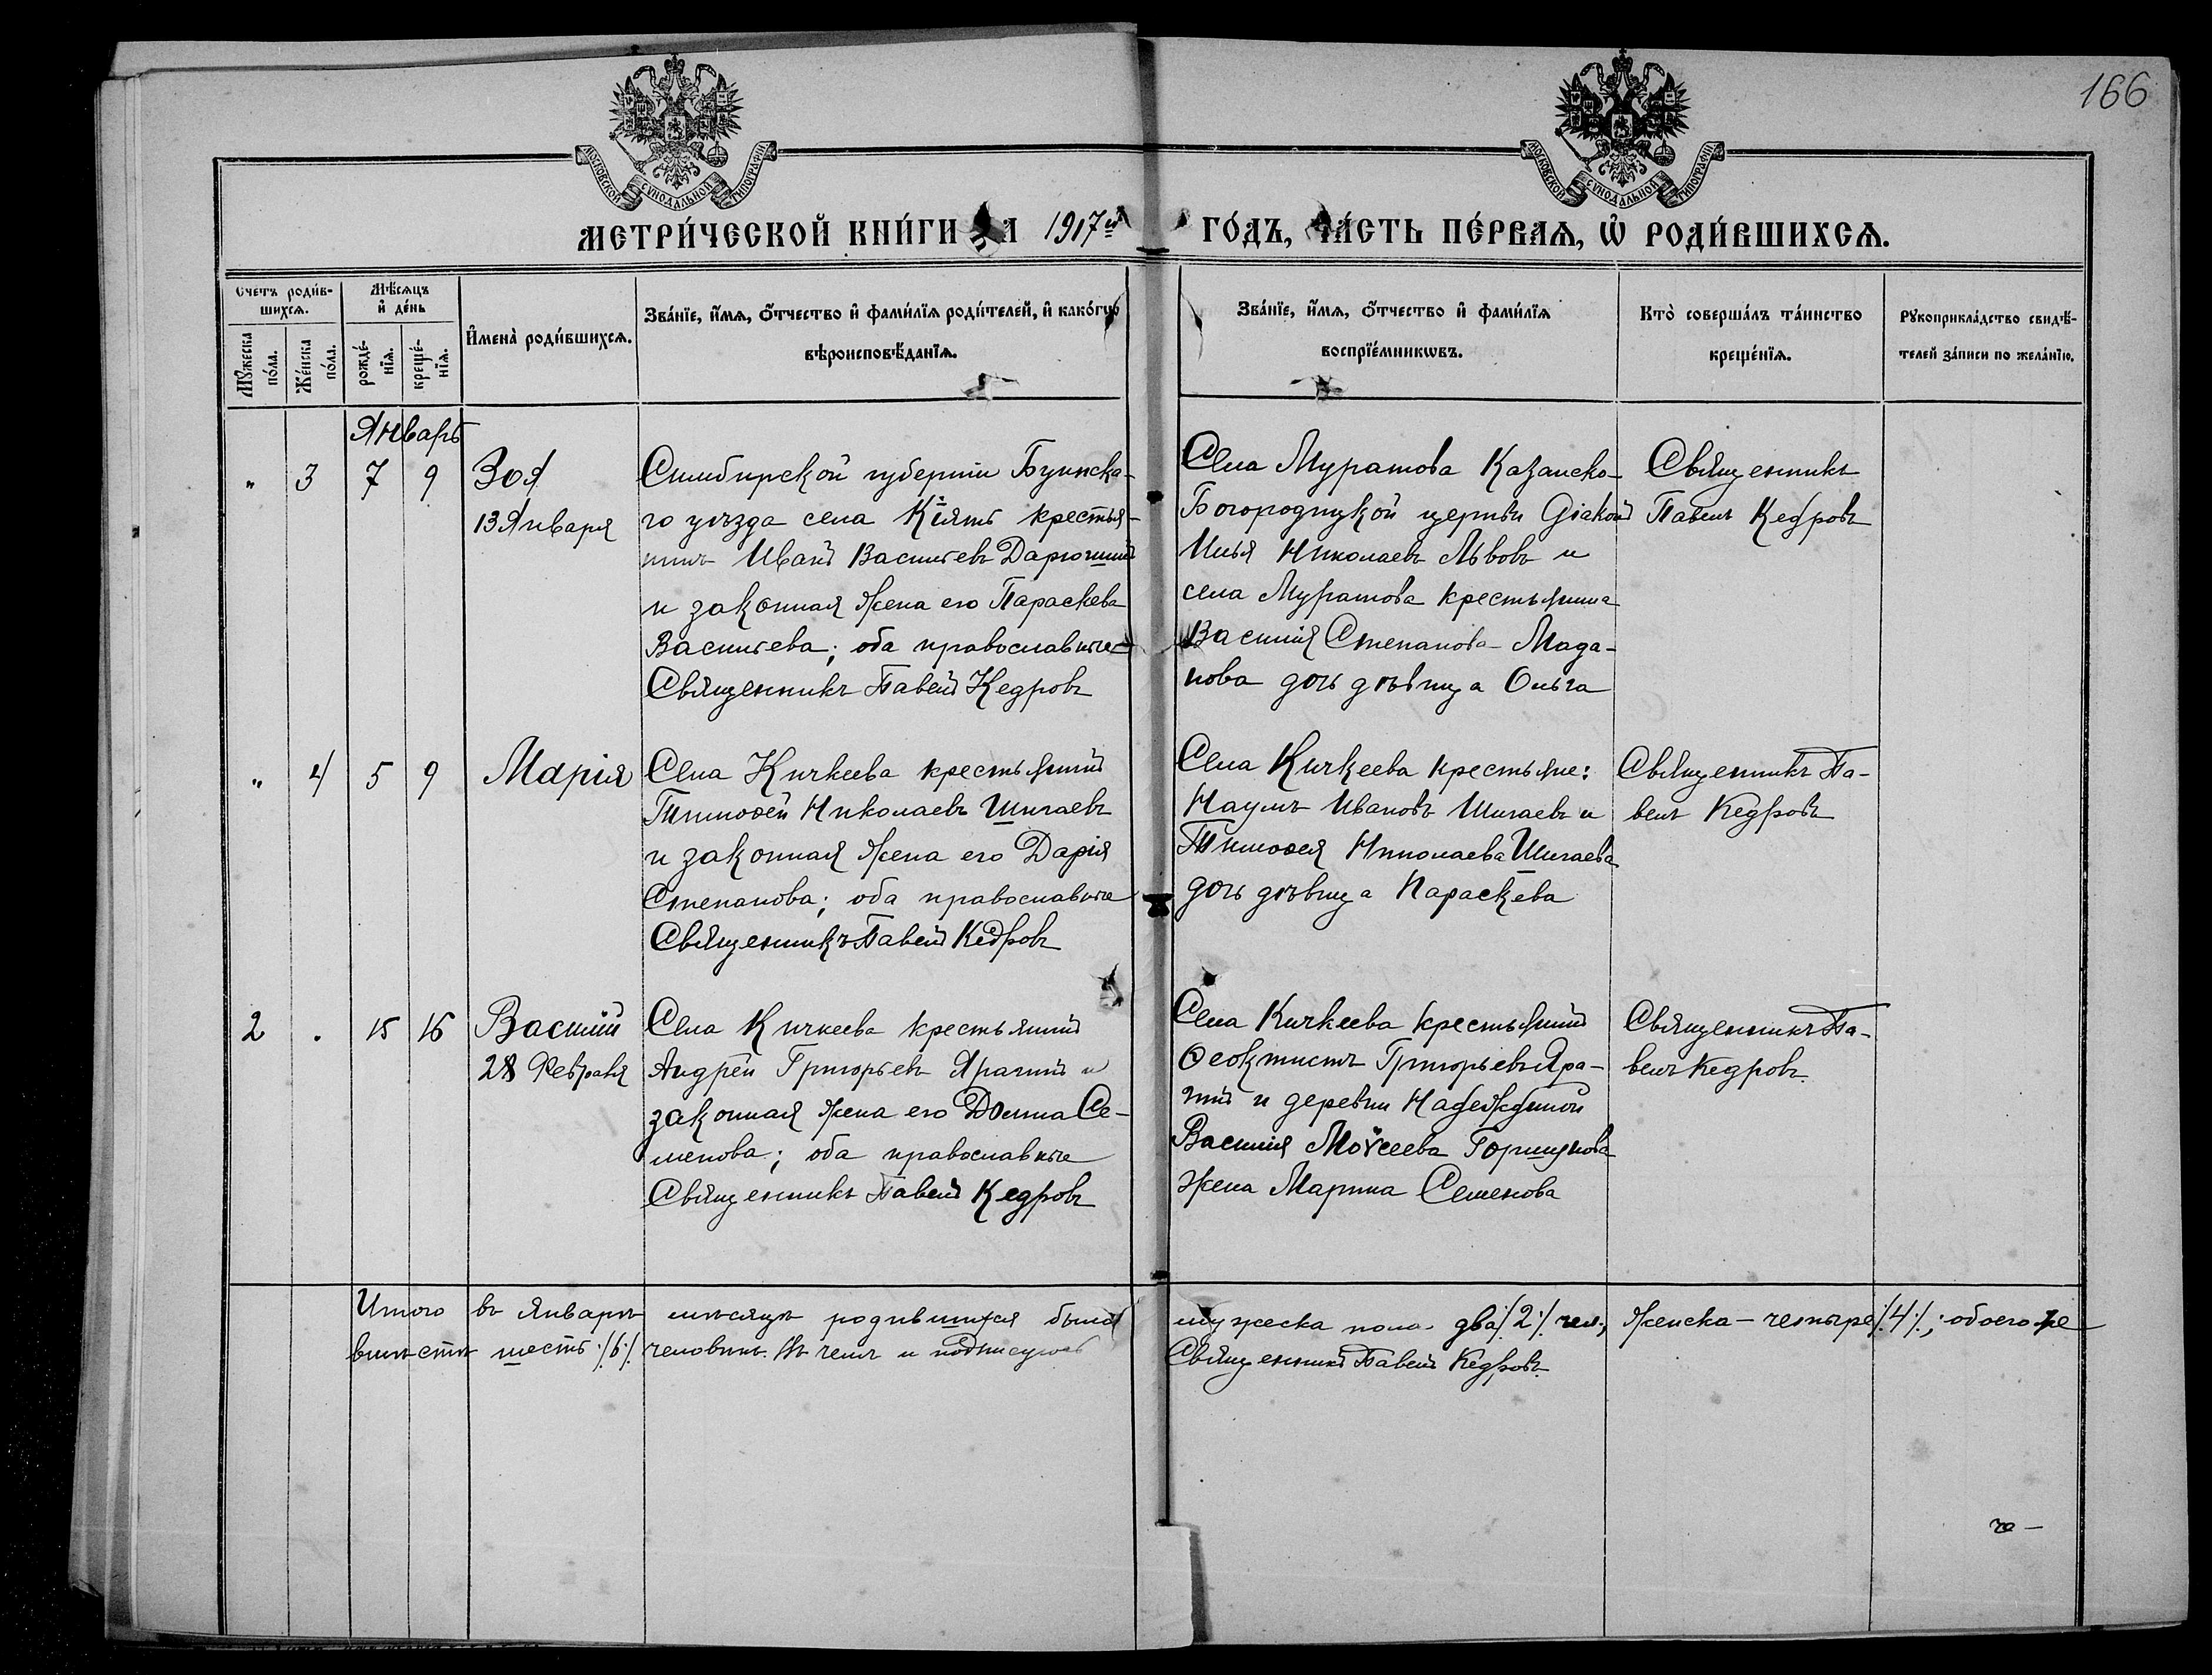 166
МОСКОВСКОЙ СѴНОДАЛЬНОЙ ТИПОГРАФІИ
МОСКОВСКОЙ СѴНОДАЛЬНОЙ ТИПОГРАФІИ
МЕТРИ́ЧЕСКОЙ КНИ́ГИ НА 1917й ГО́ДЪ, ЧА́СТЬ ПЕ́РВАѦ, Ѡ҆ РОДИ́ВШИХСѦ.
Счетъ роди́в-
шихсѧ.
Мꙋ́жеска по́ла.
Же́нска по́ла.
Мѣ́сѧцъ
и҆ де́нь
рожде́-
нїѧ.
креще́-
нїѧ.
И҆мена̀ роди́вшихсѧ.
Зва́нїе, и҆́мѧ, ѻ҆́тчество и҆ фами́лїѧ роди́телей, и҆ како́гѡ
вѣроисповѣ́данїѧ.
Зва́нїе, и҆́мѧ, ѻ҆́тчество и҆ фами́лїѧ
воспрїе́мникѡвъ.
Кто̀ соверша́лъ та́инство
креще́нїѧ.
Рꙋкоприкла́дство свидѣ́-
телей за́писи по жела́нїю.
Январь
" 3 7 9 Зоя
13 Января
Симбирской губерніи Буинска-
го уѣзда села Кіять крестья-
нинъ Иванъ Василіевъ Дарюшинъ
и законная жена его Параскева
Василіева; оба православные
Священникъ Павелъ Кедровъ
Села Муратова Казанско-
Богородицкой церкви Діаконъ
Илья Николаевъ Львовъ и
села Муратова крестьянина
Василія Степанова Мада-
нова дочь дѣвица Ольга
Священникъ
Павелъ Кедровъ
" 4 5 9 Марія
Села Кичкеева крестьянинъ
Тимоѳей Николаевъ Шигаевъ
и законная жена его Дарія
Степанова; оба православные
Священникъ Павелъ Кедровъ
Села Кичкеева крестьяне:
Наумъ Ивановъ Шигаевъ и
Тимоѳея Николаева Шигаева
дочь дѣвица Параскева
Священникъ Па-
велъ Кедровъ
2 . 15 16 Василій
28 Февраля
Села Кичкеева крестьянинъ
Андрей Григорьевъ Ярагинъ и
законная жена его Домна Се-
менова; оба православные
Священникъ Павелъ Кедровъ
Села Кичкеева крестьянинъ
Ѳеоктистъ Григорьевъ Яра-
гинъ и деревни Надеждиной
Василія Моѵсеева Горшунова
жена Марина Семенова
Священникъ Па-
велъ Кедровъ.
Итого въ январѣ мѣсяцѣ родившихся было мужеска пола два /2/. чел.; женска - четыре /.4/.; обоего же
вмѣстѣ шесть ./6/. человѣкъ. Въ чемъ и подписуюсь Священникъ Павелъ Кедровъ.